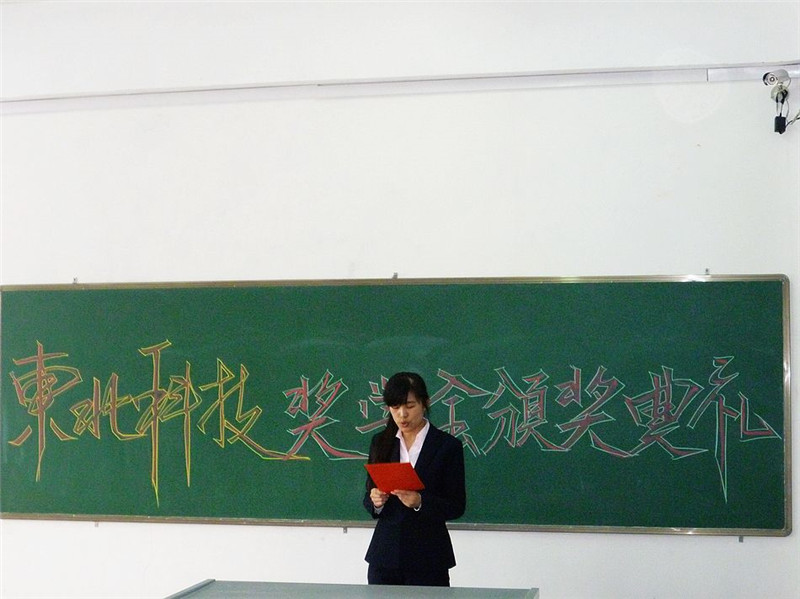 東北科技奖学金颁奖典礼